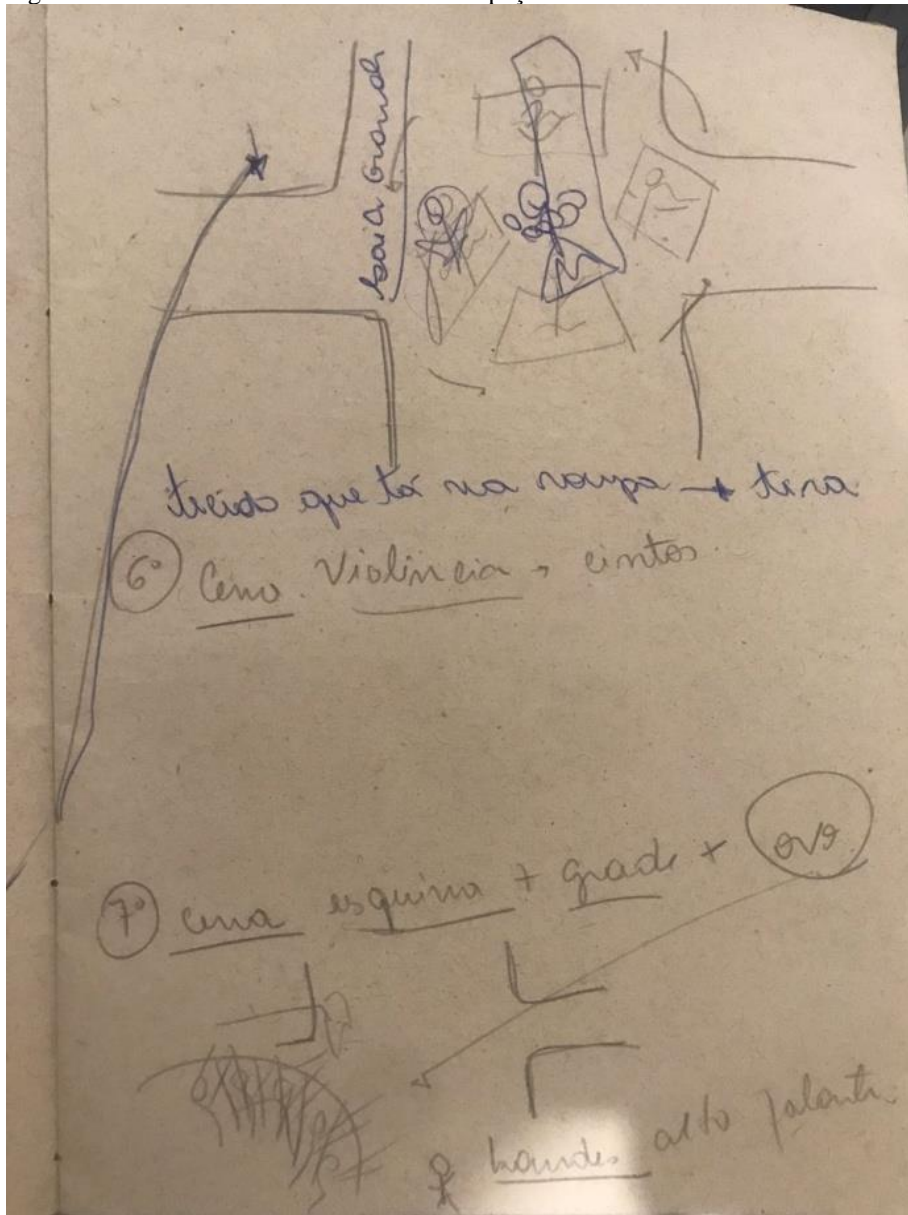 saia Grande
tecido que tá na roupa → tira
6º Cena Violência → cintos
7º cena esquina + grade + ovo
alto falante